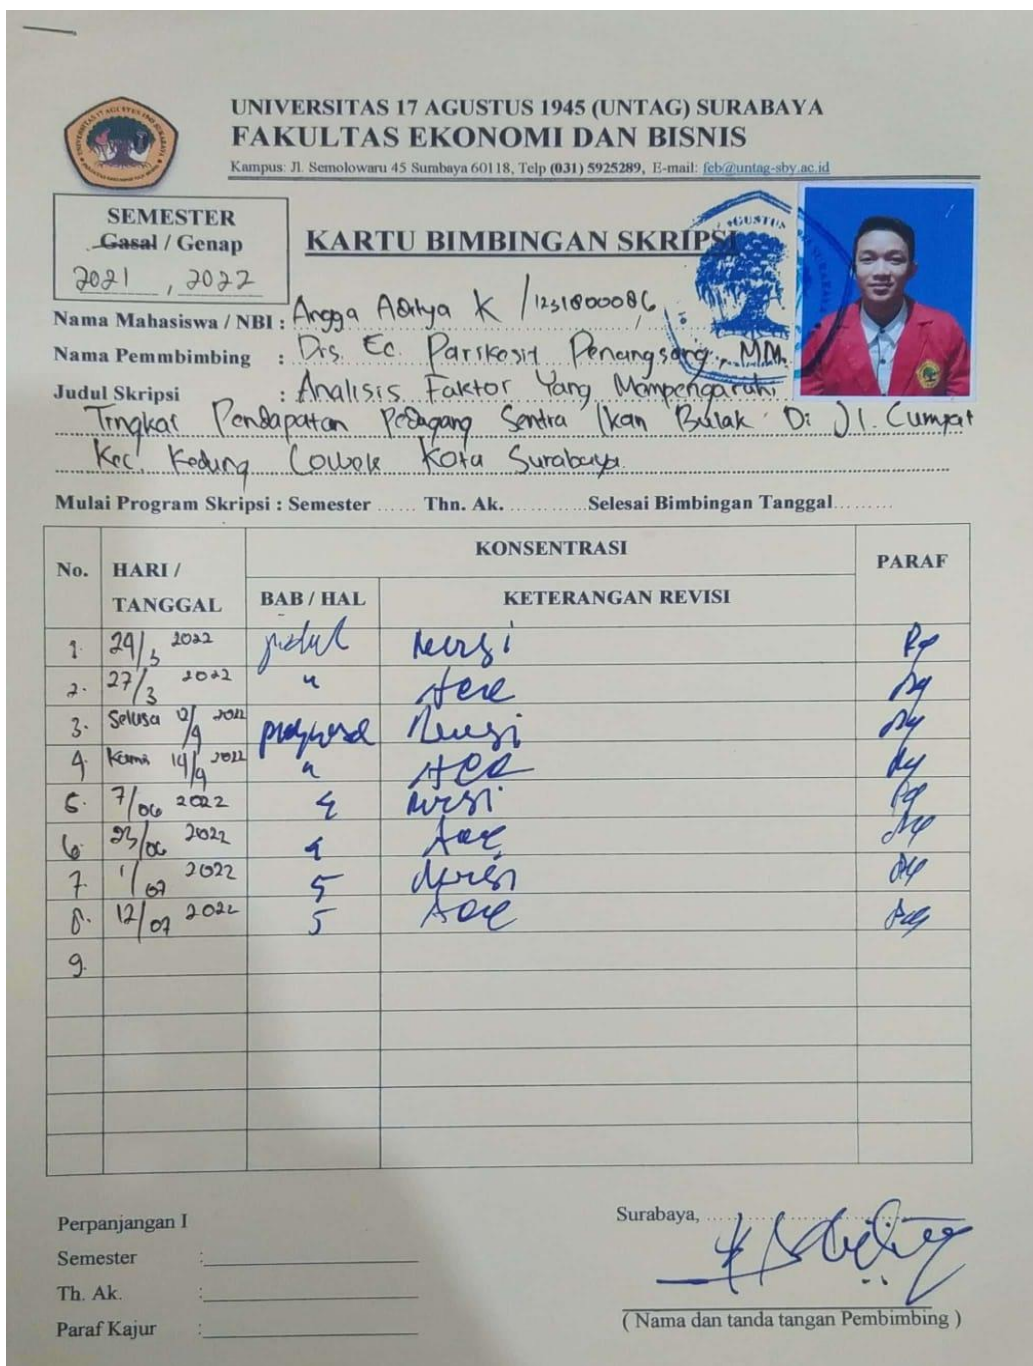 UNIVERSITAS 17 AGUSTUS 1945 (UNTAG) SURABAYA
FAKULTAS EKONOMI DAN BISNIS
Kampus: Jl. Semolowaru 45 Surabaya 60118, Telp (031) 5925289, E-mail: feb@untag-sby.ac.id
SEMESTER
Gasal / Genap
2021, 2022
KARTU BIMBINGAN SKRIPSI
Nama Mahasiswa / NBI : Angga Aditya K / 1231800086
Nama Pemmbimbing : Drs. Ec. Parikesit Penangsang, MM.
Judul Skripsi : Analisis Faktor Yang Mampengaruhi
Tingkat Pendapatan Pedagang Sentra Ikan Bulak Di Jl. Cumpat
Kec. Kedung Cowek Kota Surabaya.
Mulai Program Skripsi : Semester ...... Thn. Ak. ............Selesai Bimbingan Tanggal.........
No. HARI / TANGGAL KONSENTRASI PARAF
BAB / HAL KETERANGAN REVISI
1. 24/3 2022 judul revisi
2. 27/3 2022 " Acc
3. Selasa 12/4 2022 proposal Revisi
4. Kamis 14/4 2022 " Acc
5. 7/06 2022 4 revisi
6. 23/06 2022 4 Acc
7. 1/07 2022 5 revisi
8. 12/07 2022 5 Acc
9.
Perpanjangan I
Semester :
Th. Ak. :
Paraf Kajur :
Surabaya, ....................
( Nama dan tanda tangan Pembimbing )